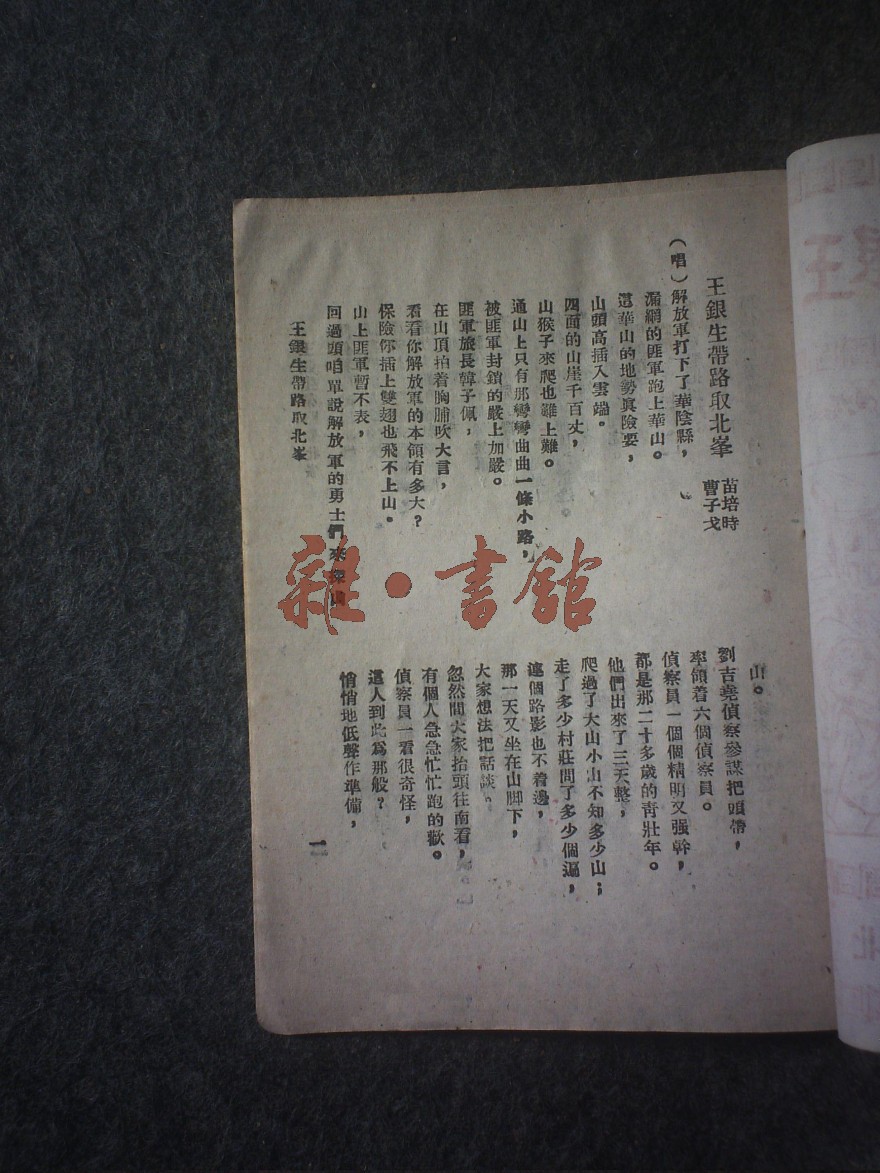 王銀生帶路取北峯
苗培時
曹子戈
(唱)解放軍打下了華陰縣,
漏網的匪軍跑上華山。
這華山的地勢眞險要,
山頭高插入雲端。
四面的山崖千百丈,
山猴子來爬也難上難。
通山上只有那彎彎曲曲一條小路,
被匪軍封鎖的嚴上加嚴。
匪軍旅長韓子佩,
在山頂拍着胸脯吹大言,
看看你解放軍的本領有多大?
保險你插上雙翅也飛不上山。
山上匪軍暫不表,
回過頭咱單說解放軍的勇士們來探
山。
劉吉堯偵察參謀把頭帶,
率領着六個偵察員。
偵察員一個個精明又强幹,
都是那二十多歲的靑壯年。
他們出來了三天整,
爬過了大山小山不知多少山;
走了多少村莊問了多少個遍,
連個路影也不着邊,
那一天又坐在山脚下,
大家想法把話談。
忽然間大家抬頭往南看,
有個人急急忙忙跑的歡。
偵察員一看很奇怪,
這人到此爲那般?
悄悄地低聲作準備,
王銀生帶路取北峯
一
雜·書館